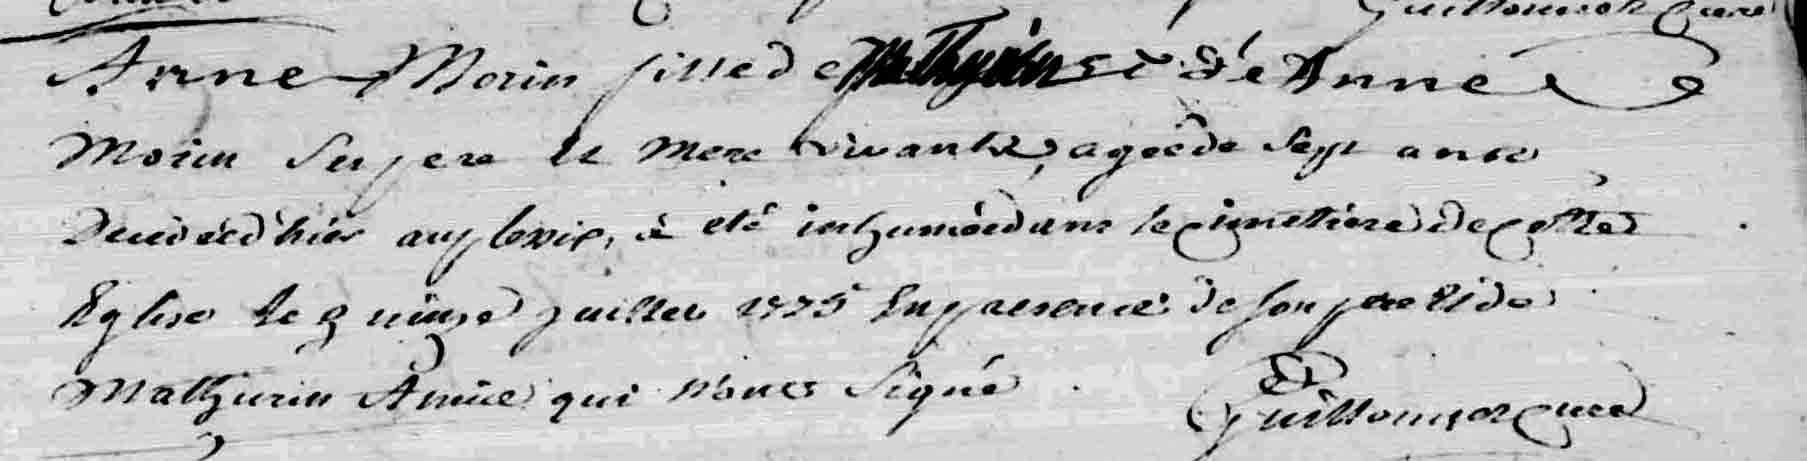 Guillonnet curé
Anne Morin fille de Mathurin et de Anne
Morin ses pere et mere vivants, agée de sept ans
decedée d'hier au à été inhumée dans le cimetiere de cette
Eglise le quinze juillet 1775 En presence de son pere Et de
Mathurin Amice qui n'ont signé
curé